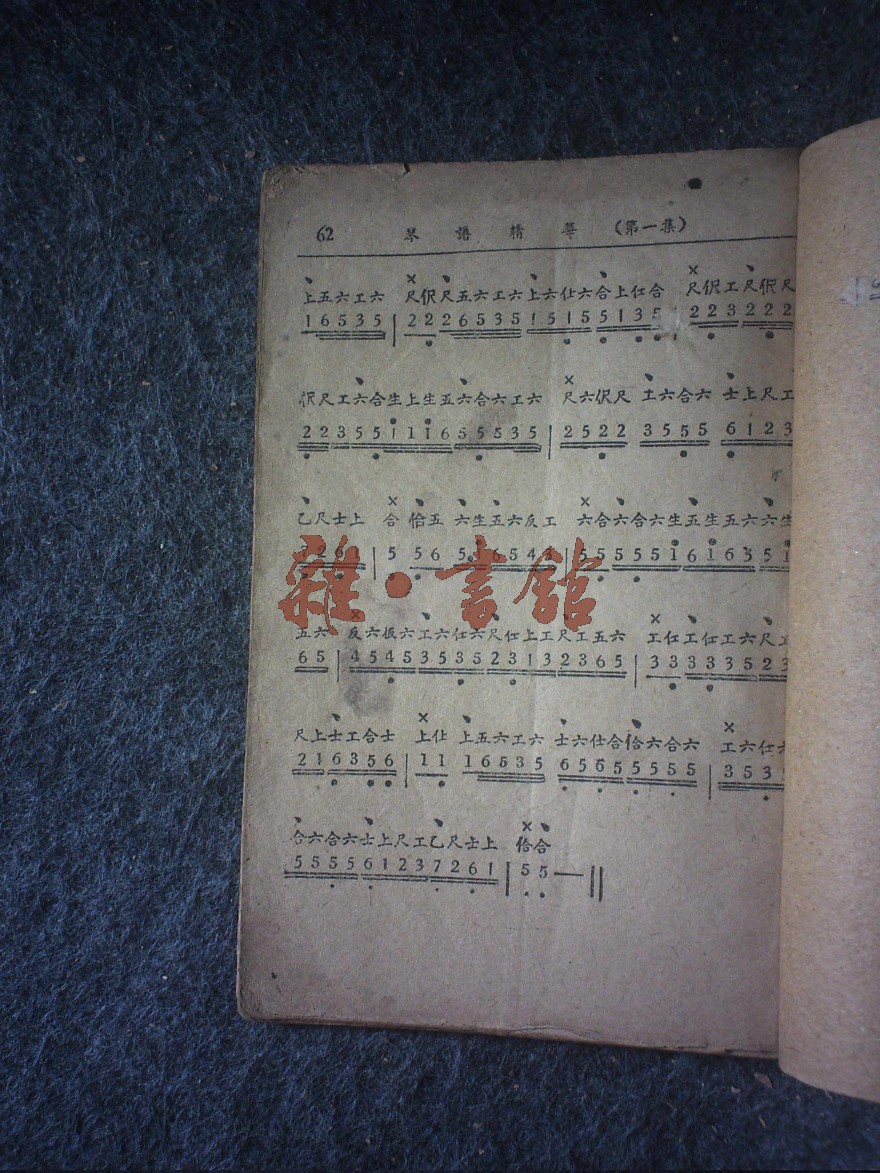 62 琴譜精華（第一集）
上五六工六 尺伬尺五六工六上六仕六合上仕合 尺伬工尺伬尺
1 6 5 3 5 | 2 2 2 6 5 3 5 1 5 1 5 5 1 3 5 2 2 3 2 2 2
伬尺工六合生上生五六合六工六 尺六伬尺 工六合六 士上尺工
2 2 3 5 5 1 1 1 6 5 5 5 3 5 | 2 5 2 2 3 5 5 5 6 1 2 3
乙尺士上 合 五 六生五六反工 六合六合六生五生五六六生
7 2 6 1 | 5 5 6 5 5 6 5 4 3 | 5 5 5 5 5 1 6 1 6 5 5 1
雜·書館
五六 反六 六工六仕六尺仕上工尺工五六 工仕工仕工六尺工
6 5 | 4 5 4 5 3 5 3 5 2 3 1 3 2 3 6 5 | 3 3 3 3 3 5 2 3
尺上士工合士 上 上五六工六 士六仕合 六合六 工六仕六
2 1 6 3 5 6 | 1 1 1 6 5 3 5 6 5 6 5 5 5 5 5 | 3 5 3 5
合六合六士上尺工乙尺士上 合
5 5 5 5 6 1 2 3 7 2 6 1 | 5 5 — ||